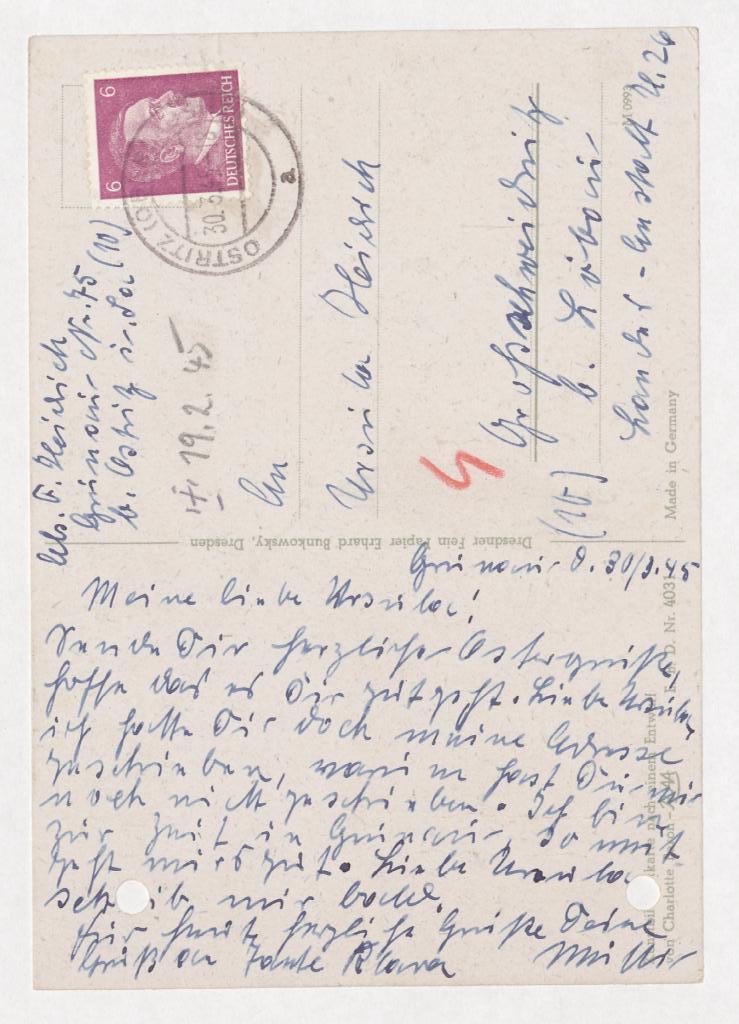 Abs. F. Heidrich
Grunau Nr. 75
b. Ostritz i. Sa (10)
6
6
DEUTSCHES REICH
OSTRITZ
30.3
a
19.2.45
An
Ursula Heidrich
Großschweidnitz
b. Löbau
(10)
Landes-Anstalt U. 26
M 0993
Made in Germany
Dresdner Fein Papier Erhard Bunkowsky, Dresden
D. Nr. 4031
nach einem Entwurf
von Charlotte
Grunau d. 30/3.45
Meine liebe Ursula!
Sende Dir herzliche Ostergrüße,
hoffe das es Dir gut geht. Liebe Ursula,
ich hatte Dir doch meine Adresse
geschrieben, warum hast Du mir
noch nicht geschrieben. Ich bin
zur Zeit in Grunau, so weit
geht mirs gut. Liebe Ursula
schreib mir bald.
Für heute herzliche Grüße Deine
Gruß an Tante Klara Mutter